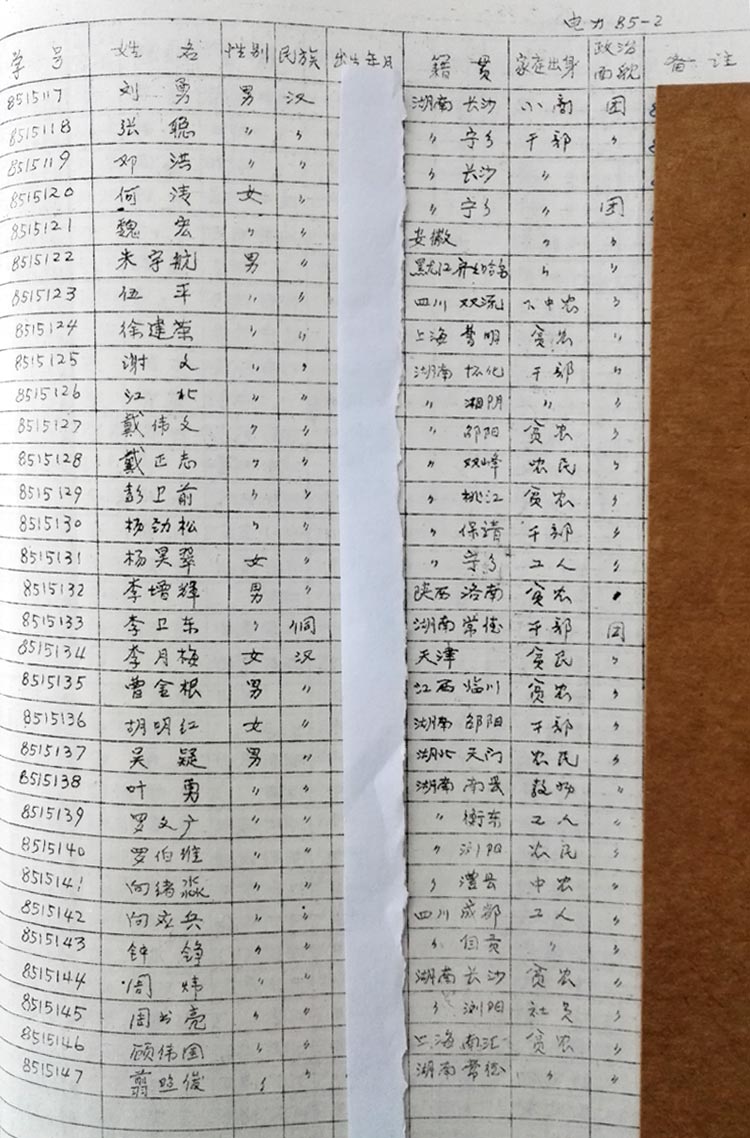 电力85-2
学号 姓名 性别 民族 出生年月 籍贯 家庭出身 政治面貌 备注
8515117 刘勇 男 汉 湖南长沙 小商 团
8515118 张聪 〃 〃 〃 宁乡 干部 〃
8515119 邓洪 〃 〃 〃 长沙 〃
8515120 何涛 女 〃 〃 宁乡 〃 团
8515121 魏宏 〃 〃 安徽 〃 〃
8515122 朱宇航 男 〃 黑龙江齐齐哈尔 〃 〃
8515123 伍平 〃 〃 四川双流 下中农 〃
8515124 徐建荣 〃 〃 上海崇明 贫农 〃
8515125 谢文 〃 〃 湖南怀化 干部 〃
8515126 江北 〃 〃 〃 湘阴 〃 〃
8515127 戴伟文 〃 〃 〃 邵阳 贫农 〃
8515128 戴正志 〃 〃 〃 双峰 农民 〃
8515129 彭卫前 〃 〃 〃 桃江 贫农 〃
8515130 杨劲松 〃 〃 〃 保靖 干部 〃
8515131 杨昊翠 女 〃 〃 宁乡 工人 〃
8515132 李增辉 男 〃 陕西洛南 贫农
8515133 李卫东 〃 侗 湖南常德 干部 团
8515134 李月梅 女 汉 天津 贫民 〃
8515135 曹金根 男 〃 江西临川 贫农 〃
8515136 胡明红 女 〃 湖南邵阳 干部 〃
8515137 吴疑 男 〃 湖北天门 农民 〃
8515138 叶勇 〃 〃 湖南南县 教师 〃
8515139 罗文广 〃 〃 〃 衡东 工人 〃
8515140 罗伯维 〃 〃 〃 浏阳 农民 〃
8515141 向绪淼 〃 〃 〃 澧县 中农 〃
8515142 向应兵 〃 〃 四川成都 工人 〃
8515143 钟铮 〃 〃 〃 自贡 〃 〃
8515144 周炜 〃 〃 湖南长沙 贫农 〃
8515145 周书亮 〃 〃 〃 浏阳 社员 〃
8515146 顾伟国 〃 〃 上海南汇 贫农 〃
8515147 翦照俊 〃 〃 湖南常德 〃 〃